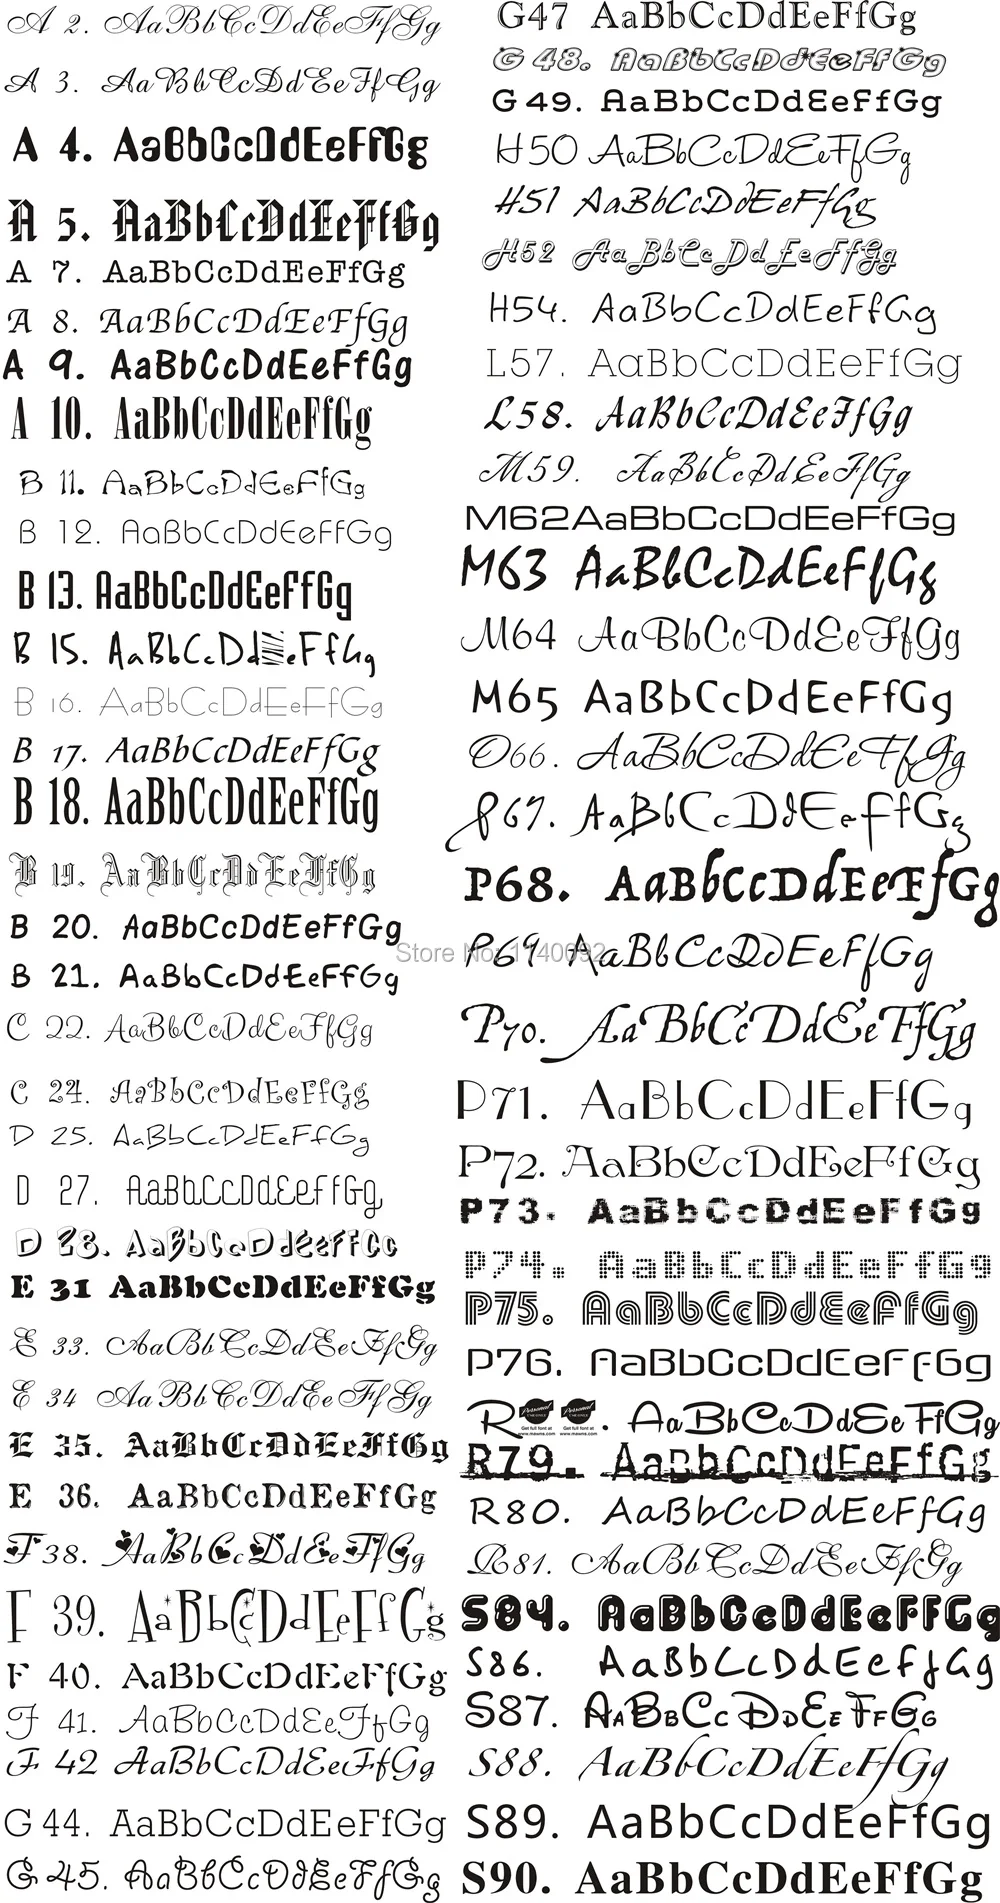 A 2. AaBbCcDdEeFfGg
A 3. AaBbCcDdEeFfGg
A 4. AaBbCcDdEeFfGg
A 5. AaBbCcDdEeFfGg
A 7. AaBbCcDdEeFfGg
A 8. AaBbCcDdEeFfGg
A 9. AaBbCcDdEeFfGg
A 10. AaBbCcDdEeFfGg
B 11. AaBbCcDdEeFfGg
B 12. AaBbCcDdEeFfGg
B 13. AaBbCcDdEeFfGg
B 15. AaBbCcDd eFfGg
B 16. AaBbCcDdEeFfGg
B 17. AaBbCcDdEeFfGg
B 18. AaBbCcDdEeFfGg
B 19. AaBbCcDdEeFfGg
B 20. AaBbCcDdEeFfGg
B 21. AaBbCcDdEeFfGg
C 22. AaBbCcDdEeFfGg
C 24. AaBbCcDdEeFfGg
D 25. AaBbCcDdEeFfGg
D 27. AaBbCcDdEeFfGg
D 28. AaBbCcDdEeFfGg
E 31 AaBbCcDdEeFfGg
E 33. AaBbCcDdEeFfGg
E 34 AaBbCcDdEeFfGg
E 35. AaBbCcDdEeFfGg
E 36. AaBbCcDdEeFfGg
F 38. AaBbCcDdEeFfGg
F 39. AaBbCcDdEeFfGg
F 40. AaBbCcDdEeFfGg
F 41. AaBbCcDdEeFfGg
F 42 AaBbCcDdEeFfGg
G 44. AaBbCcDdEeFfGg
G 45. AaBbCcDdEeFfGg
G47 AaBbCcDdEeFfGg
G 48. AaBbCcDdEeFfGg
G 49. AaBbCcDdEeFfGg
H50 AaBbCcDdEeFfGg
H51 AaBbCcDdEeFfGg
H52 AaBbCcDdEeFfGg
H54. AaBbCcDdEeFfGg
L57. AaBbCcDdEeFfGg
L58. AaBbCcDdEeFfGg
M59. AaBbCcDdEeFfGg
M62AaBbCcDdEeFfGg
M63 AaBbCcDdEeFfGg
M64 AaBbCcDdEeFfGg
M65 AaBbCcDdEeFfGg
O66. AaBbCcDdEeFfGg
P67. AaBbCcDdEeFfGg
P68. AaBbCcDdEeFfGg
Store No: 1740692
P69 AaBbCcDdEeFfGg
P70. AaBbCcDdEeFfGg
P71. AaBbCcDdEeFfGg
P72. AaBbCcDdEeFfGg
P73. AaBbCcDdEeFfGg
P74. AaBbCcDdEeFfGg
P75. AaBbCcDdEeFfGg
P76. AaBbCcDdEeFfGg
R . AaBbCcDdEeFfGg
R79. AaBbCcDdEeFfGg
R80. AaBbCcDdEeFfGg
R81. AaBbCcDdEeFfGg
S84. AaBbCcDdEeFfGg
S86. AaBbCcDdEeFfGg
S87. AaBbCcDdEeFfGg
S88. AaBbCcDdEeFfGg
S89. AaBbCcDdEeFfGg
S90. AaBbCcDdEeFfGg